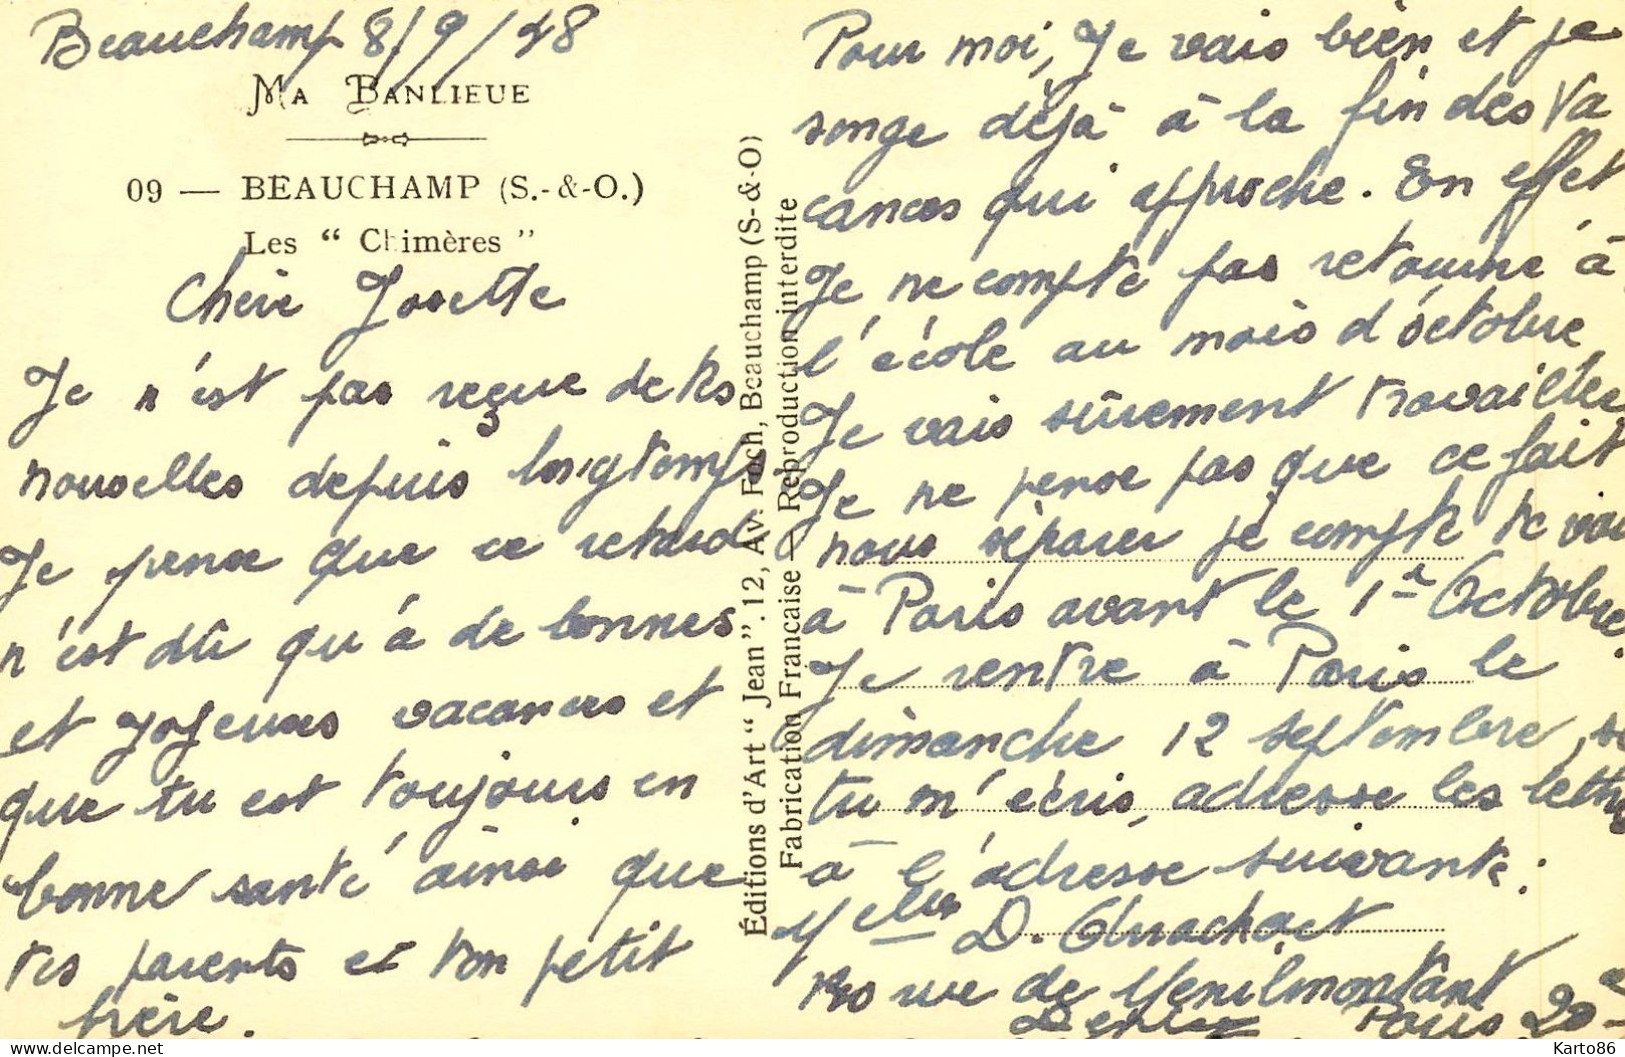 Beauchamp 8/9/48
MA BANLIEUE
09 — BEAUCHAMP (S.-&-O.)
Les “ Chimères ”
Chère Josette
Je n'est pas reçue de tes
nouvelles depuis longtemps
Je pense que ce retard
n'est dû qu'à de bonnes
et joyeuses vacances et
que tu est toujours en
bonne santé ainsi que
tes parents et ton petit
frère.
Éditions d'Art “ Jean ”. 12, Av. Foch, Beauchamp (S-&-O)
Fabrication Française — Reproduction interdite
Pour moi, Je vais bien et je
songe déjà à la fin des va
cances qui approche. En effet
Je ne compte pas retourné à
l'école au mois d'octobre
Je vais sûrement travailler
Je ne pense pas que ce fait
nous séparer je compte te voir
à Paris avant le 1er Octobre.
Je rentre à Paris le
dimanche 12 septembre, si
tu m'écris, adresse les lettres
à l'adresse suivante :
Melle D.
rue de Ménilmontant
Denise Paris 20e
Karto86